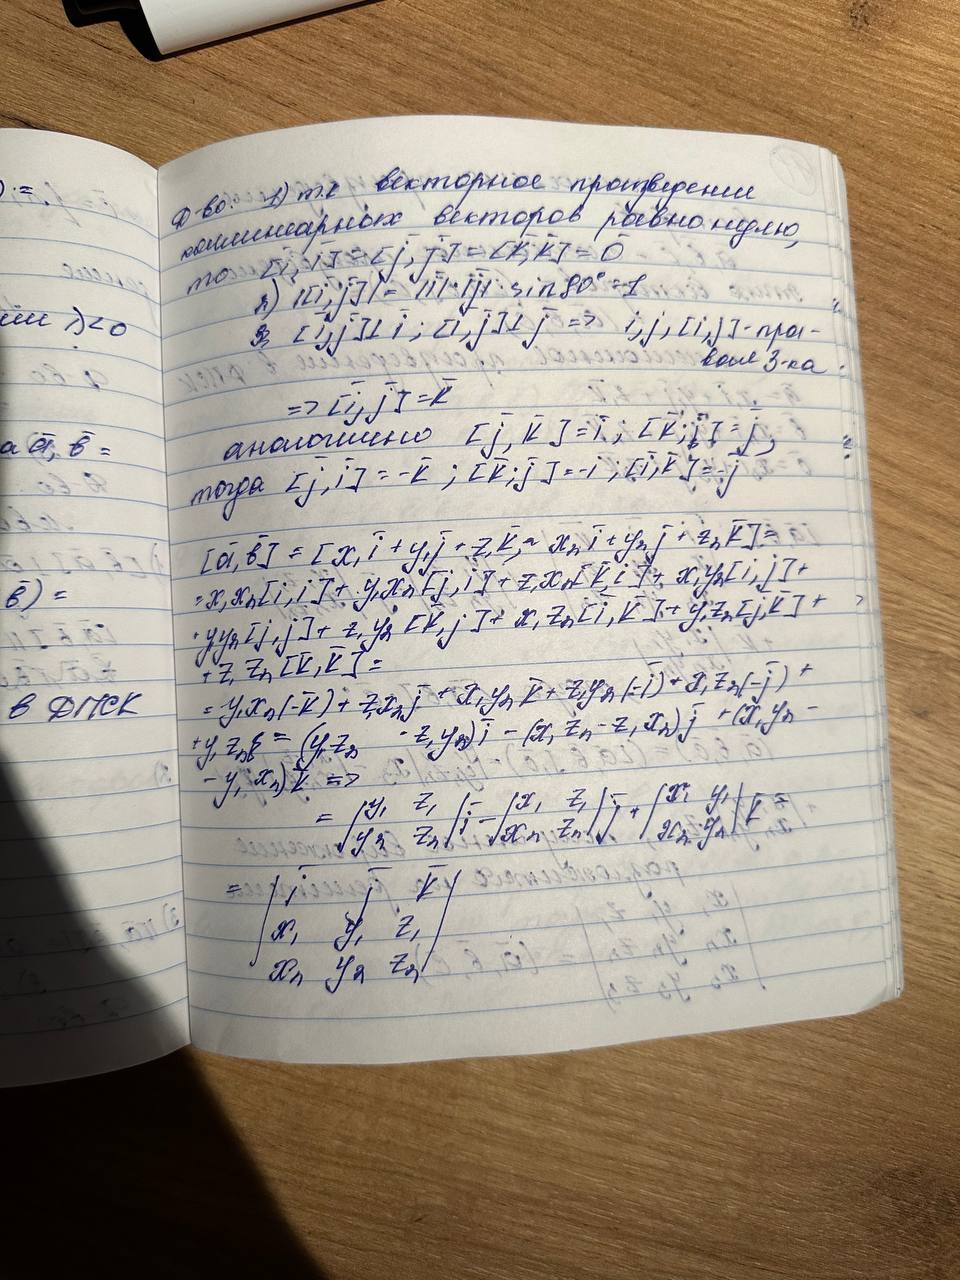 Д-во: 1) т.к векторное произведение
коллинеарных векторов равно нулю,
то [i̅, i̅] = [j̅, j̅] = [k̅, k̅] = 0
2) |[i̅, j̅]| = |i̅|·|j̅| sin 90° = 1
3) [i̅, j̅]⊥i̅ ; [i̅, j̅]⊥j̅ => i, j, [i, j] - пра-
вая 3-ка
=> [i̅, j̅] = k̅
аналогично [j̅, k̅] = i̅ ; [k̅; i̅] = j̅,
тогда [j̅, i̅] = -k̅ ; [k̅; j̅] = -i ; [i̅, k̅] = -j̅
[a̅, b̅] = [x₁i̅ + y₁j̅ + z₁k̅, x₂i̅ + y₂j̅ + z₂k̅] =
= x₁x₂[i̅, i̅] + y₁x₂[j̅, i̅] + z₁x₂[k̅ i̅] + x₁y₂[i̅, j̅] +
+ y₁y₂[j̅, j̅] + z₁y₂[k̅, j̅] + x₁z₂[i̅, k̅] + y₁z₂[j̅, k̅] +
+ z₁z₂[k̅, k̅] =
= y₁x₂(-k̅) + z₁x₂j̅ + x₁y₂k̅ + z₁y₂(-i̅) + x₁z₂(-j̅) +
+ y₁z₂ = (y₁z₂ - z₁y₂)i̅ - (x₁z₂ - z₁x₂)j̅ + (x₁y₂ -
- y₁x₂)k̅ =>
= |y₁ z₁| i̅ - |x₁ z₁| j̅ + |x₁ y₁| k̅ =
|y₂ z₂| |x₂ z₂| |x₂ y₂|
= |i̅ j̅ k̅|
|x₁ y₁ z₁|
|x₂ y₂ z₂|
λ<0
a̅, b̅ =
b̅) =
в ДПСК